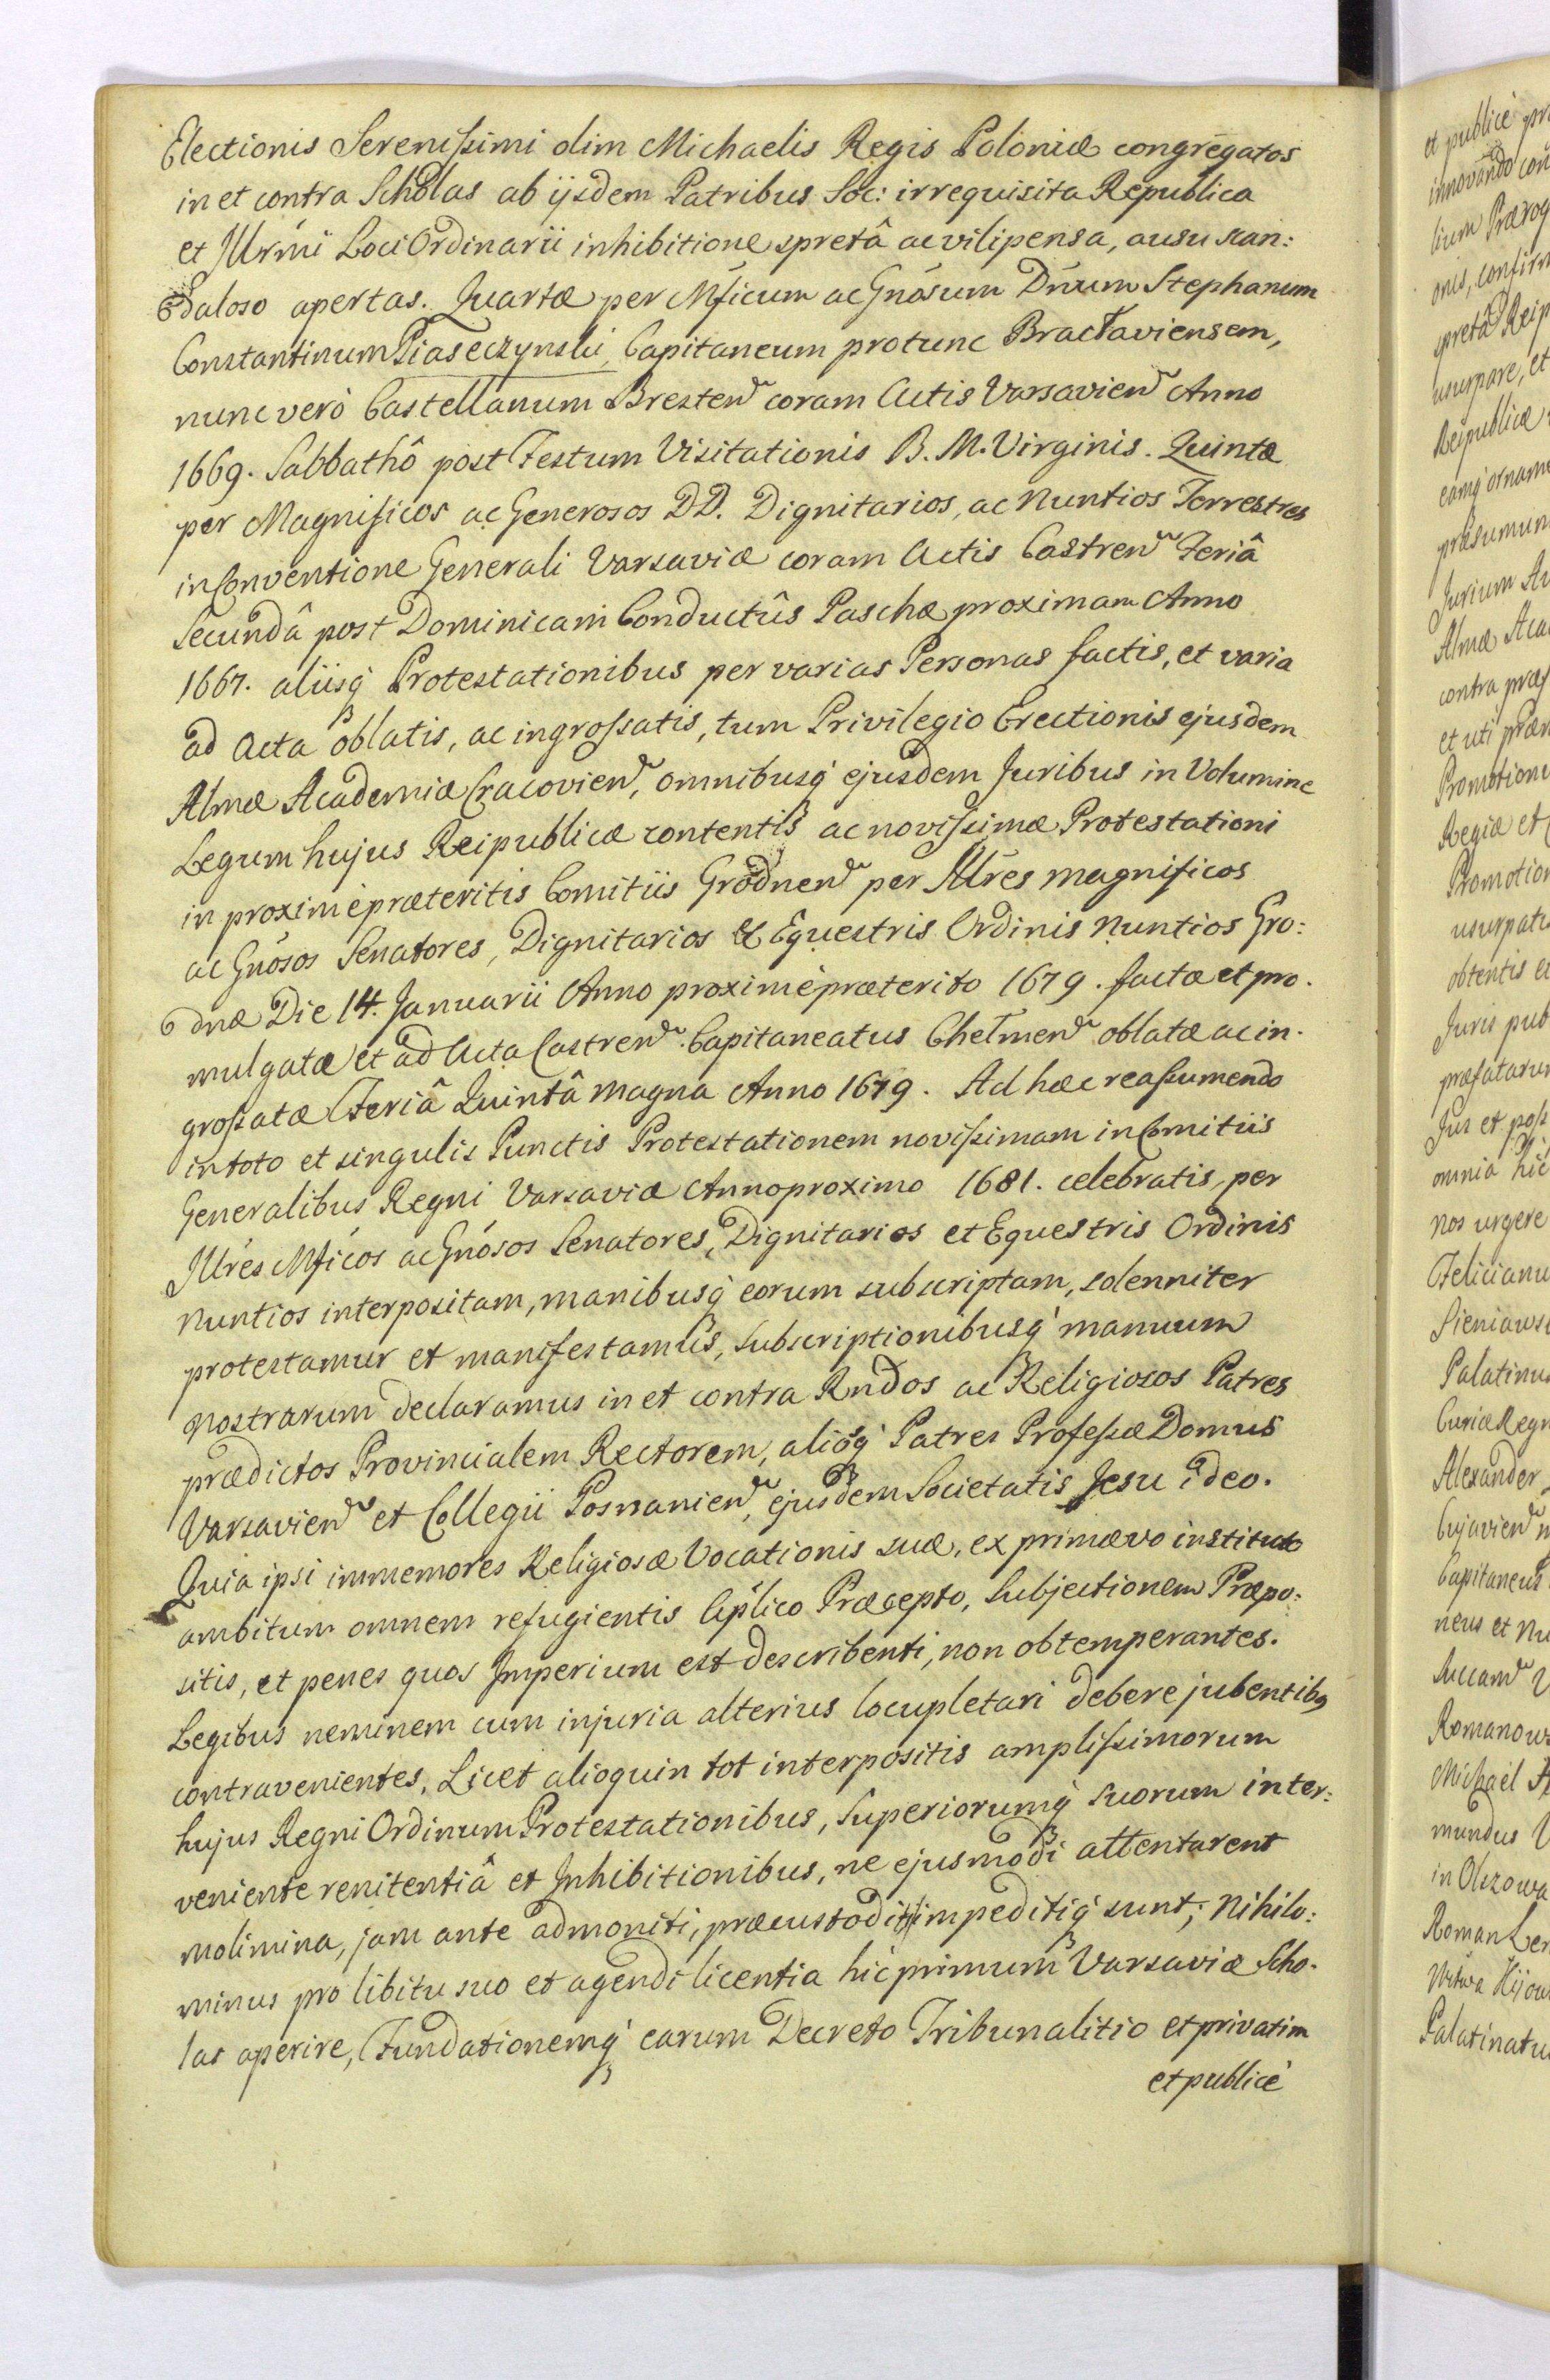 Electionis Serenissimi olim Michaelis Regis Poloniæ congregatos
in et contra Scholas ab ijsdem Patribus Soc: irrequisita Republica
et Illrmi Loci Ordinarii inhibitione spretâ ac vilipensa, ausu scan:
daloso apertas. Quartæ per Mficum ac Gnosum Dnum Stephanum
Constantinum Piaseczynski, Capitaneum protunc Bractaviensem,
nunc verò Castellanum Bresten coram Actis Varsavien Anno
1669. Sabbathô post Festum Visitationis B. M. Virginis. Quintæ
per Magnificos ac Generosos DD. Dignitarios, ac Nuntios Terrestres
in Conventione Generali Varsaviæ coram Actis Castren Feriâ
Secundâ post Dominicam Conductûs Paschæ proximam Anno
1667. aliisq Protestationibus per varias Personas factis, et varia
ad Acta oblatis, ac ingrossatis, tum Privilegio Erectionis ejusdem
Almæ Academiæ Cracovien, omnibusq ejusdem Juribus in Volumine
Legum hujus Reipublicæ contentis ac novissimæ Protestationi
in proximè præteritis Comitiis Grodnen per Illres magnificos
ac Gnosos Senatores, Dignitarios & Equestris Ordinis Nuntios Gro:
dnæ Die 14. Januarii Anno proximè præterito 1679. factæ et pro.
mulgatæ et ad Acta Castren. Capitaneatus Chelmen oblatæ ac in.
grossatæ Feriâ Quintâ magna Anno 1679. Ad hæc reassumendo
in toto et singulis Punctis Protestationem novissimam in Comitiis
Generalibus Regni Varsaviæ Anno proximo 1681. celebratis, per
Illres Mficos ac Gnosos Senatores, Dignitarios et Equestris Ordinis
Nuntios interpositam, manibusq eorum subscriptam, solenniter
protestamur et manifestamus, Subscriptionibusq manuum
nostrarum declaramus in et contra Rndos ac Religiosos Patres
prædictos Provincialem Rectorem, aliosq Patres Professæ Domus
Varsavien et Collegii Posnanien, ejusdem Societatis Jesu ideo.
Quia ipsi immemores Religiosæ Vocationis suæ, ex primævo instituto
ambitum omnem refugientis Aplico Præcepto, Subjectionem Præpo:
sitis, et penes quos Imperium est describenti, non obtemperantes.
Legibus neminem cum injuria alterius locupletari debere jubentibq
contravenientes, Licet alioquin tot interpositis amplissimorum
hujus Regni Ordinum Protestationibus, Superiorumq suorum inter:
veniente renitentiâ et Inhibitionibus, ne ejusmodi attentarent
molimina, jam ante admoniti, præcustoditi impeditiq sunt; Nihilo:
minus pro libitu suo et agendi licentia hic primum Varsaviæ Scho.
las aperire, Fundationemq earum Decreto Tribunalitio et privatim
et publicè
et publicè
innovando
Reipublicæ
præsumun
Jurium
Almæ
contra
et uti
Promotion
Regiæ et
Promotion
obtentis
Jus et
omnia hic
nos urgere
Palatinus
Alexander
Michael
mundus
Roman